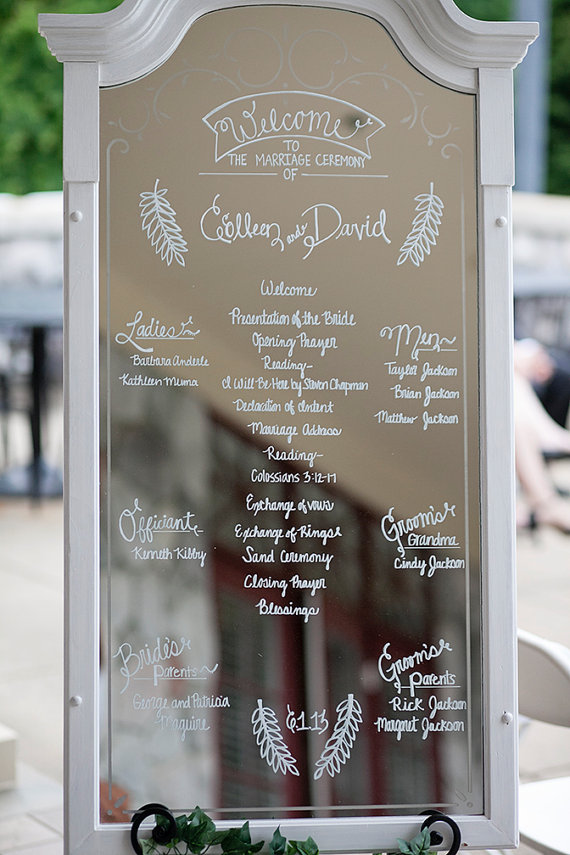 Welcome
TO
THE MARRIAGE CEREMONY
OF
Colleen and David
Welcome
Presentation of the Bride
Opening Prayer
Reading-
I Will Be Here by Steven Chapman
Declaration of Intent
Marriage Address
Reading-
Colossians 3:12-17
Exchange of vows
Exchange of Rings
Sand Ceremony
Closing Prayer
Blessings
Ladies
Barbara Anderle
Kathleen Muma
Officiant
Kenneth Kibby
Bride's
Parents
George and Patricia
Maguire
Men
Taylor Jackson
Brian Jackson
Matthew Jackson
Groom's
Grandma
Cindy Jackson
Groom's
Parents
Rick Jackson
Margret Jackson
6.1.13